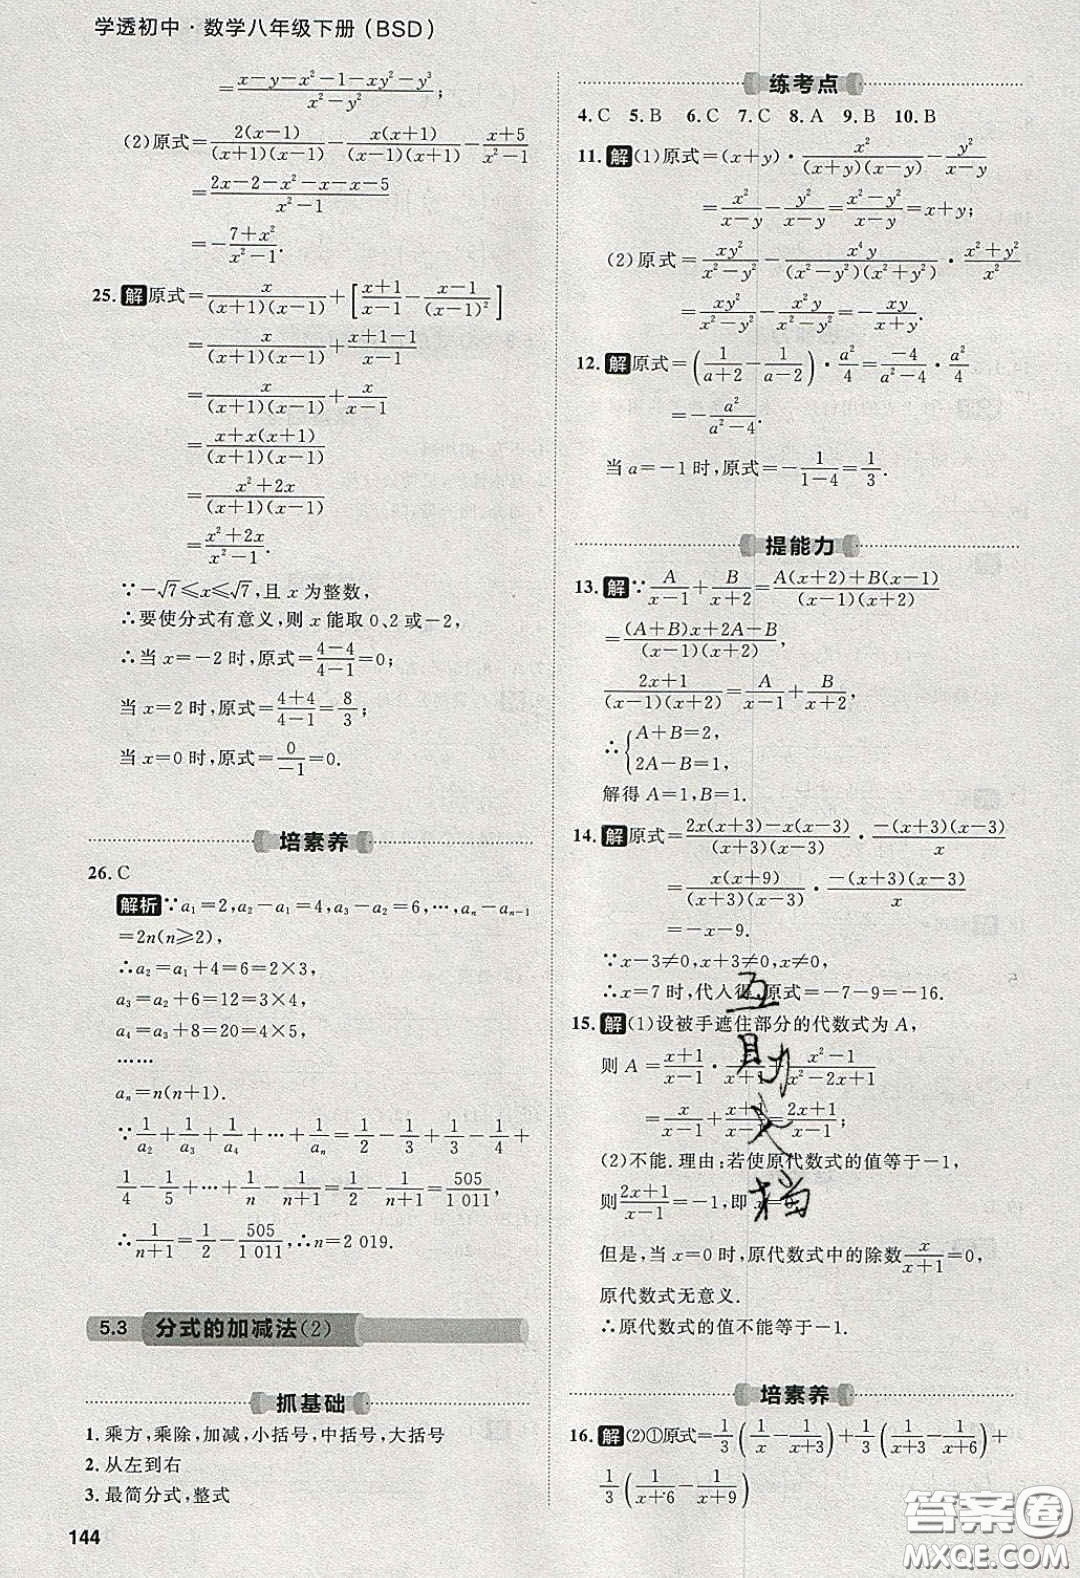 学透初中·数学八年级下册(BSD)
=(x-y-x²-1-xy²-y³)/(x²-y²);
(2)原式=2(x-1)/((x+1)(x-1))-x(x+1)/((x-1)(x+1))-(x+5)/(x²-1)
=(2x-2-x²-x-x-5)/(x²-1)
=-(7+x²)/(x²-1).
25.解 原式=x/((x+1)(x-1))+[(x+1)/(x-1)-(x-1)/(x-1)²]
=x/((x+1)(x-1))+(x+1-1)/(x-1)
=x/((x+1)(x-1))+x/(x-1)
=(x+x(x+1))/((x+1)(x-1))
=(x²+2x)/((x+1)(x-1))
=(x²+2x)/(x²-1).
∵-√7≤x≤√7,且x为整数,
∴要使分式有意义,则x能取0、2或-2,
∴当x=-2时,原式=(4-4)/(4-1)=0;
当x=2时,原式=(4+4)/(4-1)=8/3;
当x=0时,原式=0/(-1)=0.
培素养
26.C
解析 ∵a₁=2,a₂-a₁=4,a₃-a₂=6,…,aₙ-aₙ₋₁
=2n(n≥2),
∴a₂=a₁+4=6=2×3,
a₃=a₂+6=12=3×4,
a₄=a₃+8=20=4×5,
……
aₙ=n(n+1).
∵1/a₂+1/a₃+1/a₄+…+1/aₙ=1/2-1/3+1/3-1/4+
1/4-1/5+…+1/n-1/(n+1)=1/2-1/(n+1)=505/1 011,
∴1/(n+1)=1/2-505/1 011,∴n=2 019.
5.3 分式的加减法(2)
抓基础
1.乘方,乘除,加减,小括号,中括号,大括号
2.从左到右
3.最简分式,整式
144
练考点
4.C 5.B 6.C 7.C 8.A 9.B 10.B
11.解 (1)原式=(x+y)·x²/((x+y)(x-y))-y²/(x-y)
=x²/(x-y)-y²/(x-y)=(x²-y²)/(x-y)=x+y;
(2)原式=xy²/(x²-y²)-x⁴y/((x²-y²)(x²+y²))·(x²+y²)/x²
=xy²/(x²-y²)-x²y/(x²-y²)=-xy/(x+y).
12.解 原式=(1/(a+2)-1/(a-2))·a²/4=-4/(a²-4)·a²/4
=-a²/(a²-4).
当a=-1时,原式=-1/(1-4)=1/3.
提能力
13.解 ∵A/(x-1)+B/(x+2)=(A(x+2)+B(x-1))/((x-1)(x+2))
=((A+B)x+2A-B)/((x-1)(x+2)),
(2x+1)/((x-1)(x+2))=A/(x-1)+B/(x+2),
∴{A+B=2,
2A-B=1,
解得A=1,B=1.
14.解 原式=(2x(x+3)-x(x-3))/((x+3)(x-3))·(-(x+3)(x-3))/x
=x(x+9)/((x+3)(x-3))·(-(x+3)(x-3))/x
=-x-9.
∵x-3≠0,x+3≠0,x≠0,
∴x=7时,代入得,原式=-7-9=-16.
15.解 (1)设被手遮住部分的代数式为A,
则A=(x+1)/(x-1)·x/(x+1)+(x²-1)/(x²-2x+1)
=x/(x-1)+(x+1)/(x-1)=(2x+1)/(x-1);
(2)不能.理由:若使原代数式的值等于-1,
则(2x+1)/(x-1)=-1,即x=0,
但是,当x=0时,原代数式中的除数x/(x+1)=0,
原代数式无意义.
∴原代数式的值不能等于-1.
培素养
16.解 (2)①原式=1/3(1/x-1/(x+3))+1/3(1/(x+3)-1/(x+6))+
1/3(1/(x+6)-1/(x+9))
互
助
文
档
答案圈
MXQE.COM